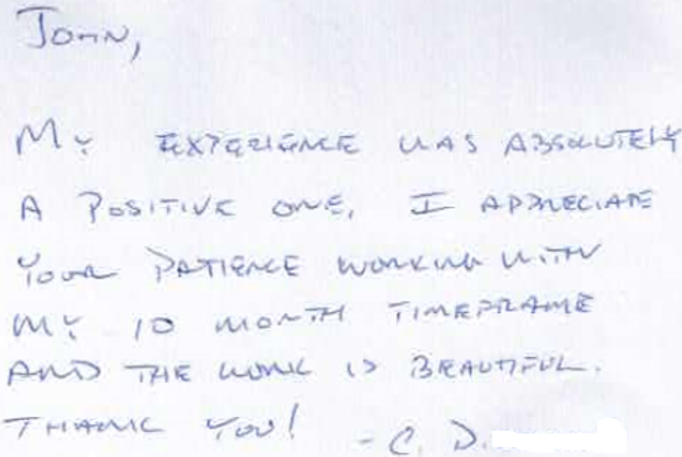 JOHN,
MY EXPERIENCE WAS ABSOLUTELY
A POSITIVE ONE. I APPRECIATE
YOUR PATIENCE WORKING WITH
MY 10 MONTH TIMEFRAME
AND THE WORK IS BEAUTIFUL.
THANK YOU! - C. D.